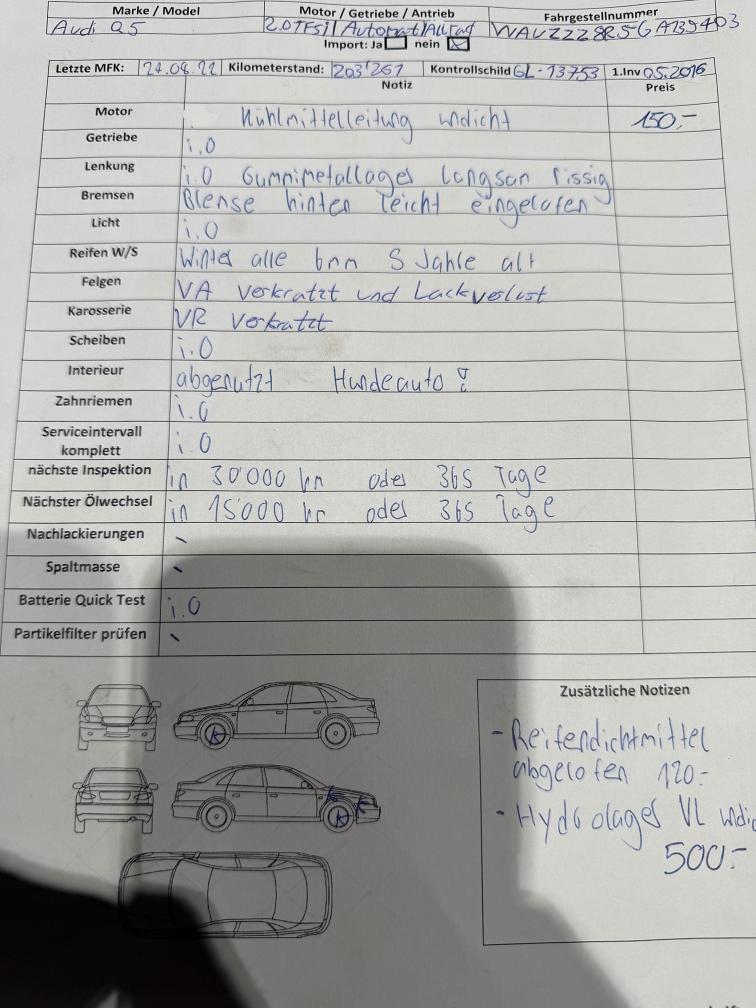 Marke / Model Motor / Getriebe / Antrieb Fahrgestellnummer
Audi Q5 2.0 TFSI / Automat / Allrad WAUZZZ8R5GA139403
Import: Ja nein
Letzte MFK: 24.08.22 Kilometerstand: 203'261 Kontrollschild GL-13753 1.Inv 05.2016
Notiz Preis
Motor Kühlmittelleitung undicht 150.-
Getriebe i.O
Lenkung i.O Gummimetallager langsam rissig
Bremsen Blense hinten leicht eingelofen
Licht i.O
Reifen W/S Winter alle 6mm 5 Jahre alt
Felgen VA verkratzt und Lackverlust
Karosserie VR verkratzt
Scheiben i.O
Interieur abgenutzt Hundeauto!
Zahnriemen i.O
Serviceintervall
komplett i.O
nächste Inspektion in 30'000 km oder 365 Tage
Nächster Ölwechsel in 15'000 km oder 365 Tage
Nachlackierungen -
Spaltmasse -
Batterie Quick Test i.O
Partikelfilter prüfen -
Zusätzliche Notizen
- Reifendichtmittel
abgelofen 120.-
- Hydrolager VL
500.-
K
K K
K